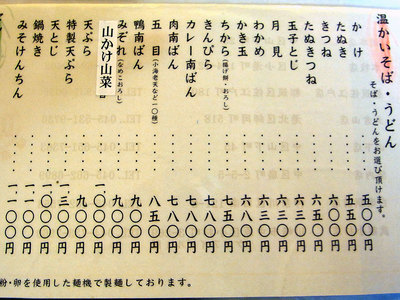 温かいそば・うどん
そば・うどんをお選び頂けます。
かけ……五〇〇円
たぬき……五五〇円
きつね……五五〇円
たぬきつね……六〇〇円
玉子とじ……六三〇円
月見……六三〇円
わかめ……六三〇円
かき玉……六八〇円
ちから(揚げ餅・おろし)……七五〇円
きんぴら……六八〇円
カレー南ばん……七八〇円
肉南ばん……七八〇円
五目(小海老天など一〇種)……八五〇円
鴨南ばん……九〇〇円
みぞれ(なめこおろし)……九〇〇円
山かけ山菜……一〇〇〇円
天ぷら……九〇〇円
特製天ぷら……一三〇〇円
天とじ……一〇〇〇円
鍋焼き……一一〇〇円
みそけんちん……一一〇〇円
粉・卵を使用した麺機で製麺しております。